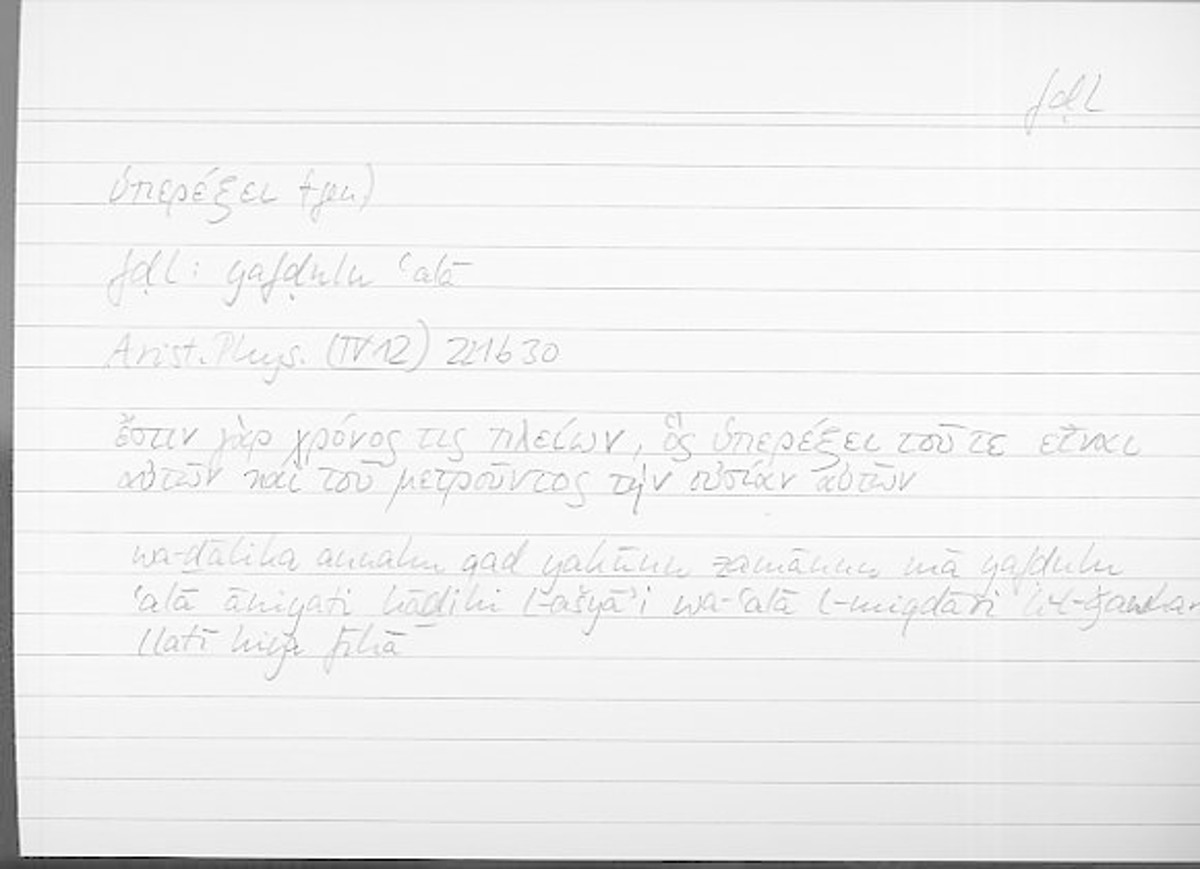 fḍl
ὑπερέξει (+gen)
fḍl: yafḍulu ʿalā
Arist. Phys. (IV 12) 221b30
ἔστιν γὰρ χρόνος τις πλείων, ὃς ὑπερέξει τοῦ τε εἶναι
αὐτῶν καὶ τοῦ μετροῦντος τὴν οὐσίαν αὐτῶν
wa-ḏālika annahu qad yakūnu zamānun mā yafḍulu
ʿalā āniyati hāḏihi l-ašyāʾi wa-ʿalā l-miqdāri li-l-ǧauhar
llatī hiya fīhā